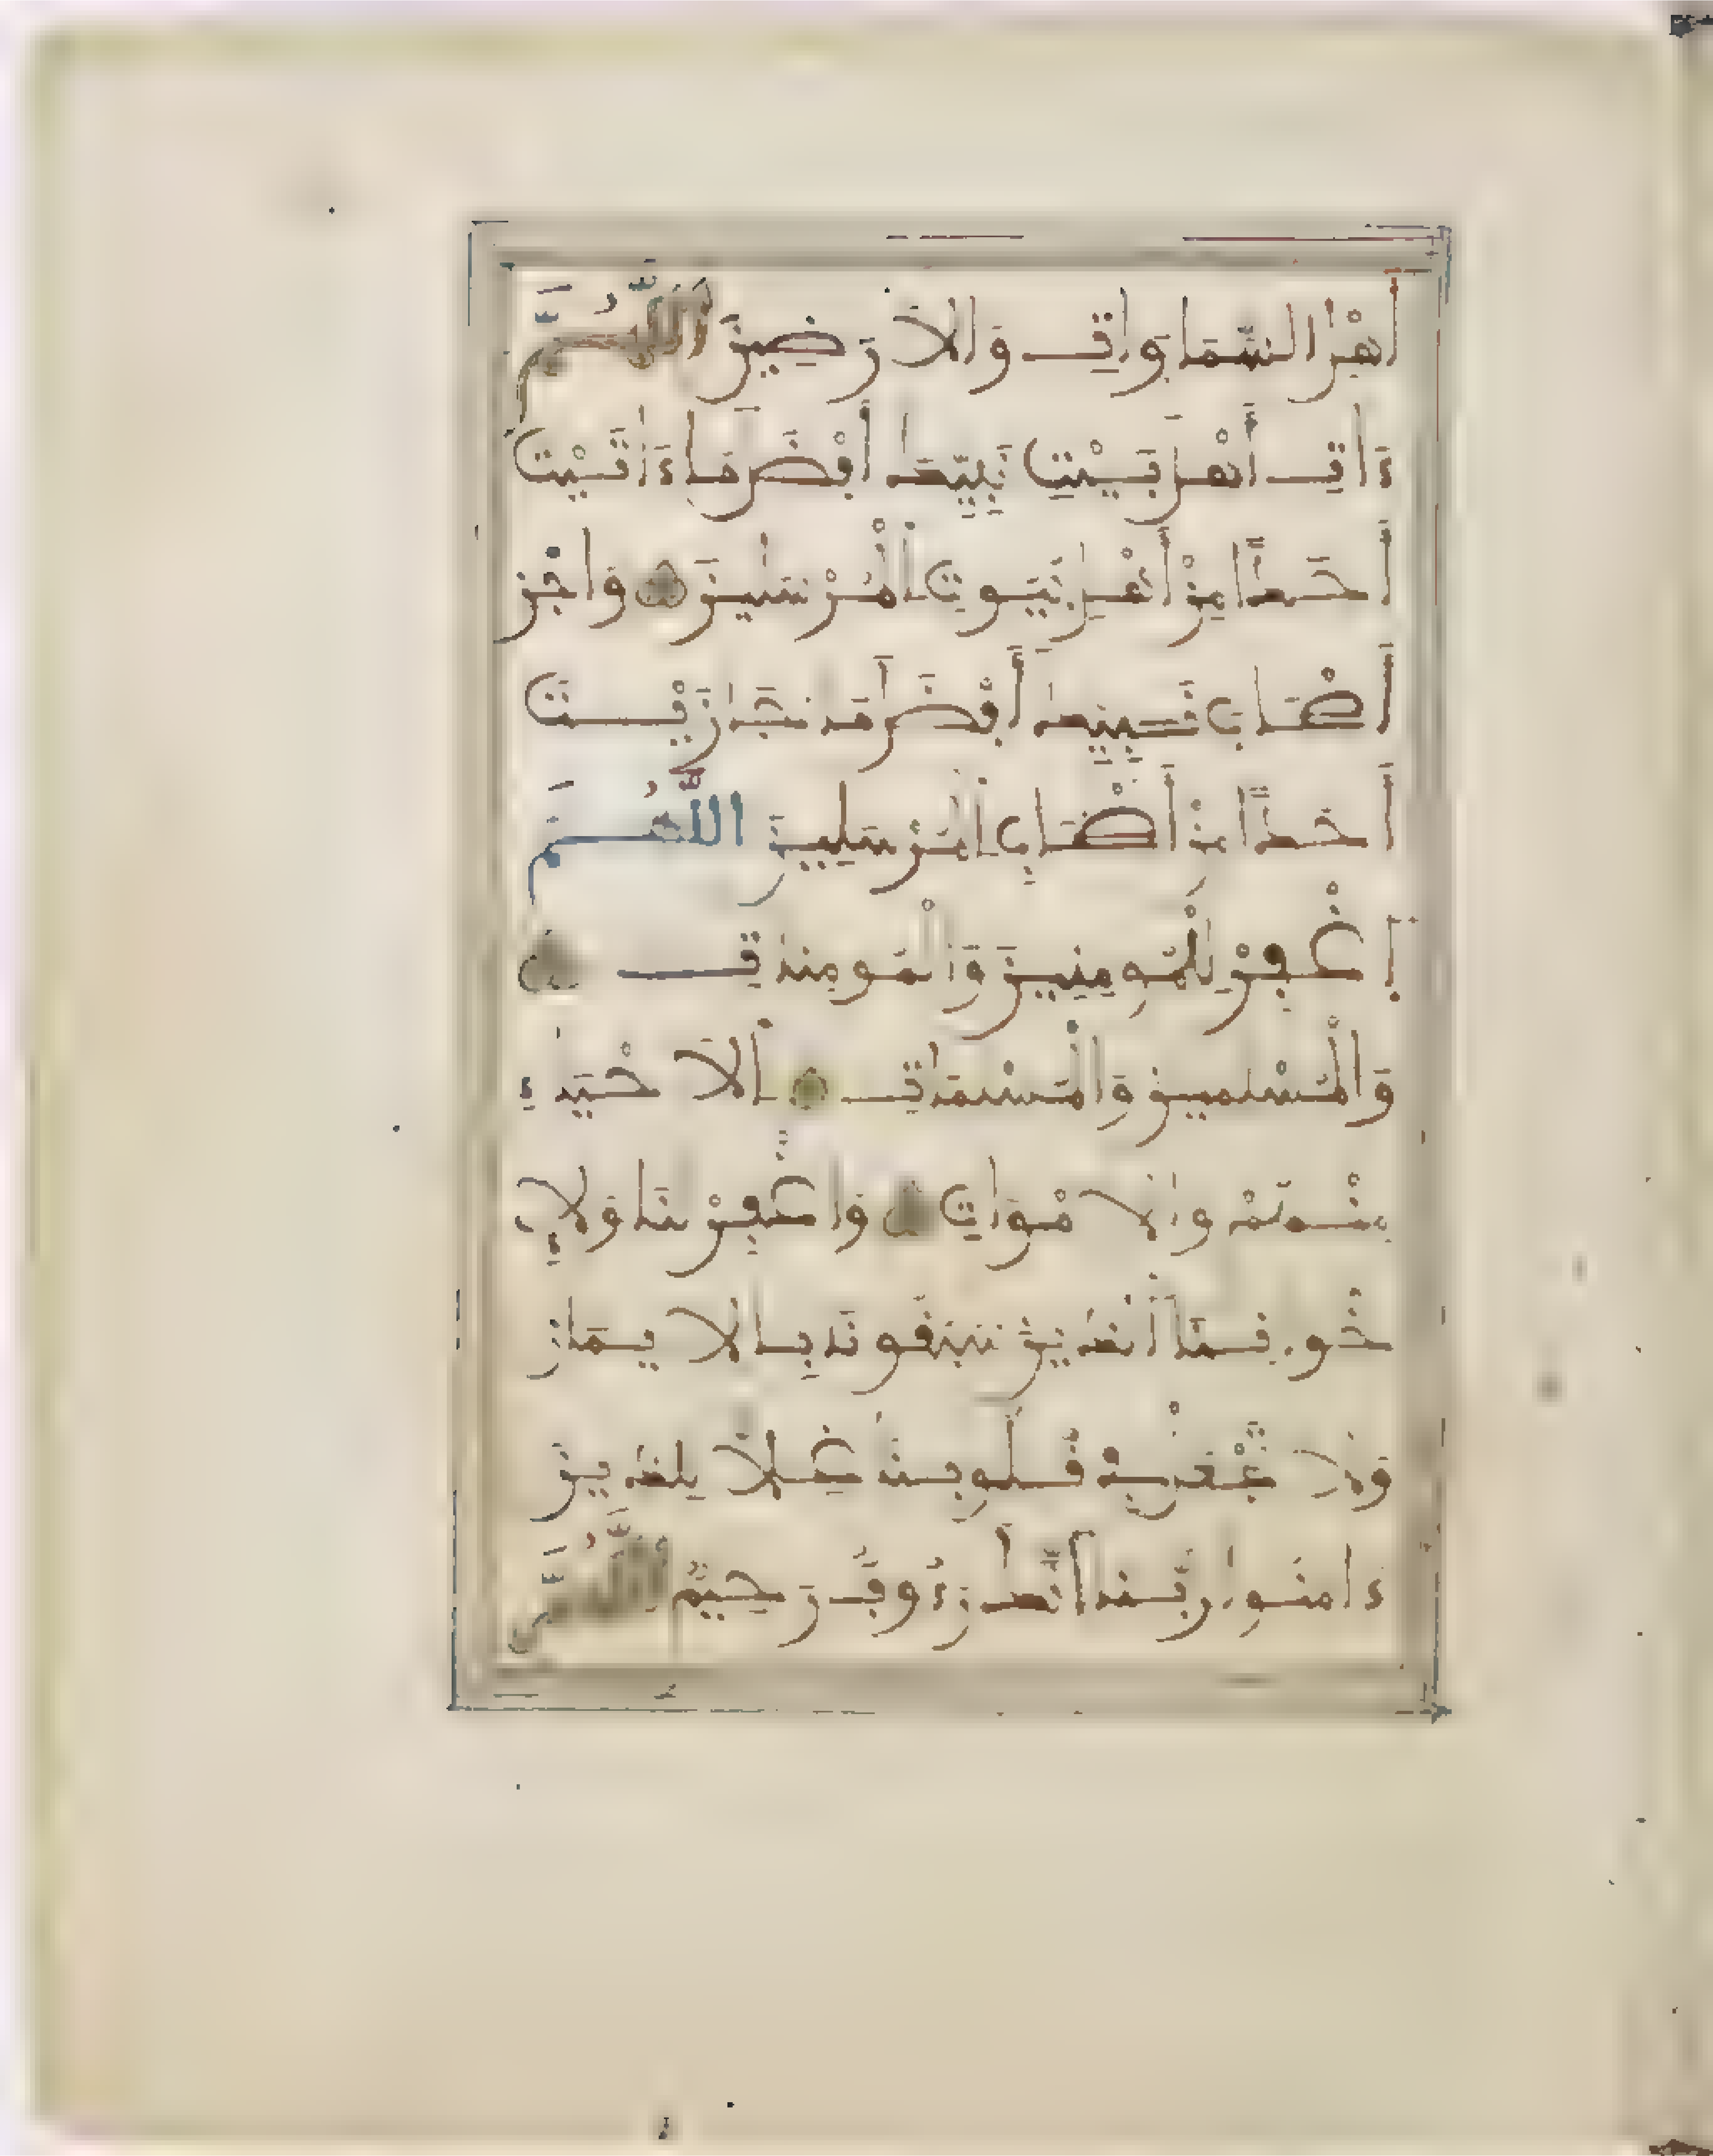 أَهْلِ السَّمَاوَاتِ وَالْأَرَضِينَ اللَّهُمَّ
ءَاتِ أَهْلَ بَيْتِ نَبِيِّكَ أَفْضَلَ مَا ءَاتَيْتَ
أَحَدًا مِنْ أَهْلِ بُيُوتِ الْمُرْسَلِينَ وَاجْزِ
أَصْحَابَ نَبِيِّكَ أَفْضَلَ مَا جَازَيْتَ
أَحَدًا مِنْ أَصْحَابِ الْمُرْسَلِينَ اللَّهُمَّ
اغْفِرْ لِلْمُومِنِينَ وَالْمُومِنَاتِ
وَالْمُسْلِمِينَ وَالْمُسْلِمَاتِ الْأَحْيَاءِ
مِنْهُمْ وَالْأَمْوَاتِ وَاغْفِرْ لَنَا وَلِإِ
خْوَانِنَا الَّذِينَ سَبَقُونَا بِالْإِيمَانِ
وَلَا تَجْعَلْ فِي قُلُوبِنَا غِلًّا لِلَّذِينَ
ءَامَنُوا رَبَّنَا إِنَّكَ رَءُوفٌ رَحِيمٌ اللَّهُمَّ